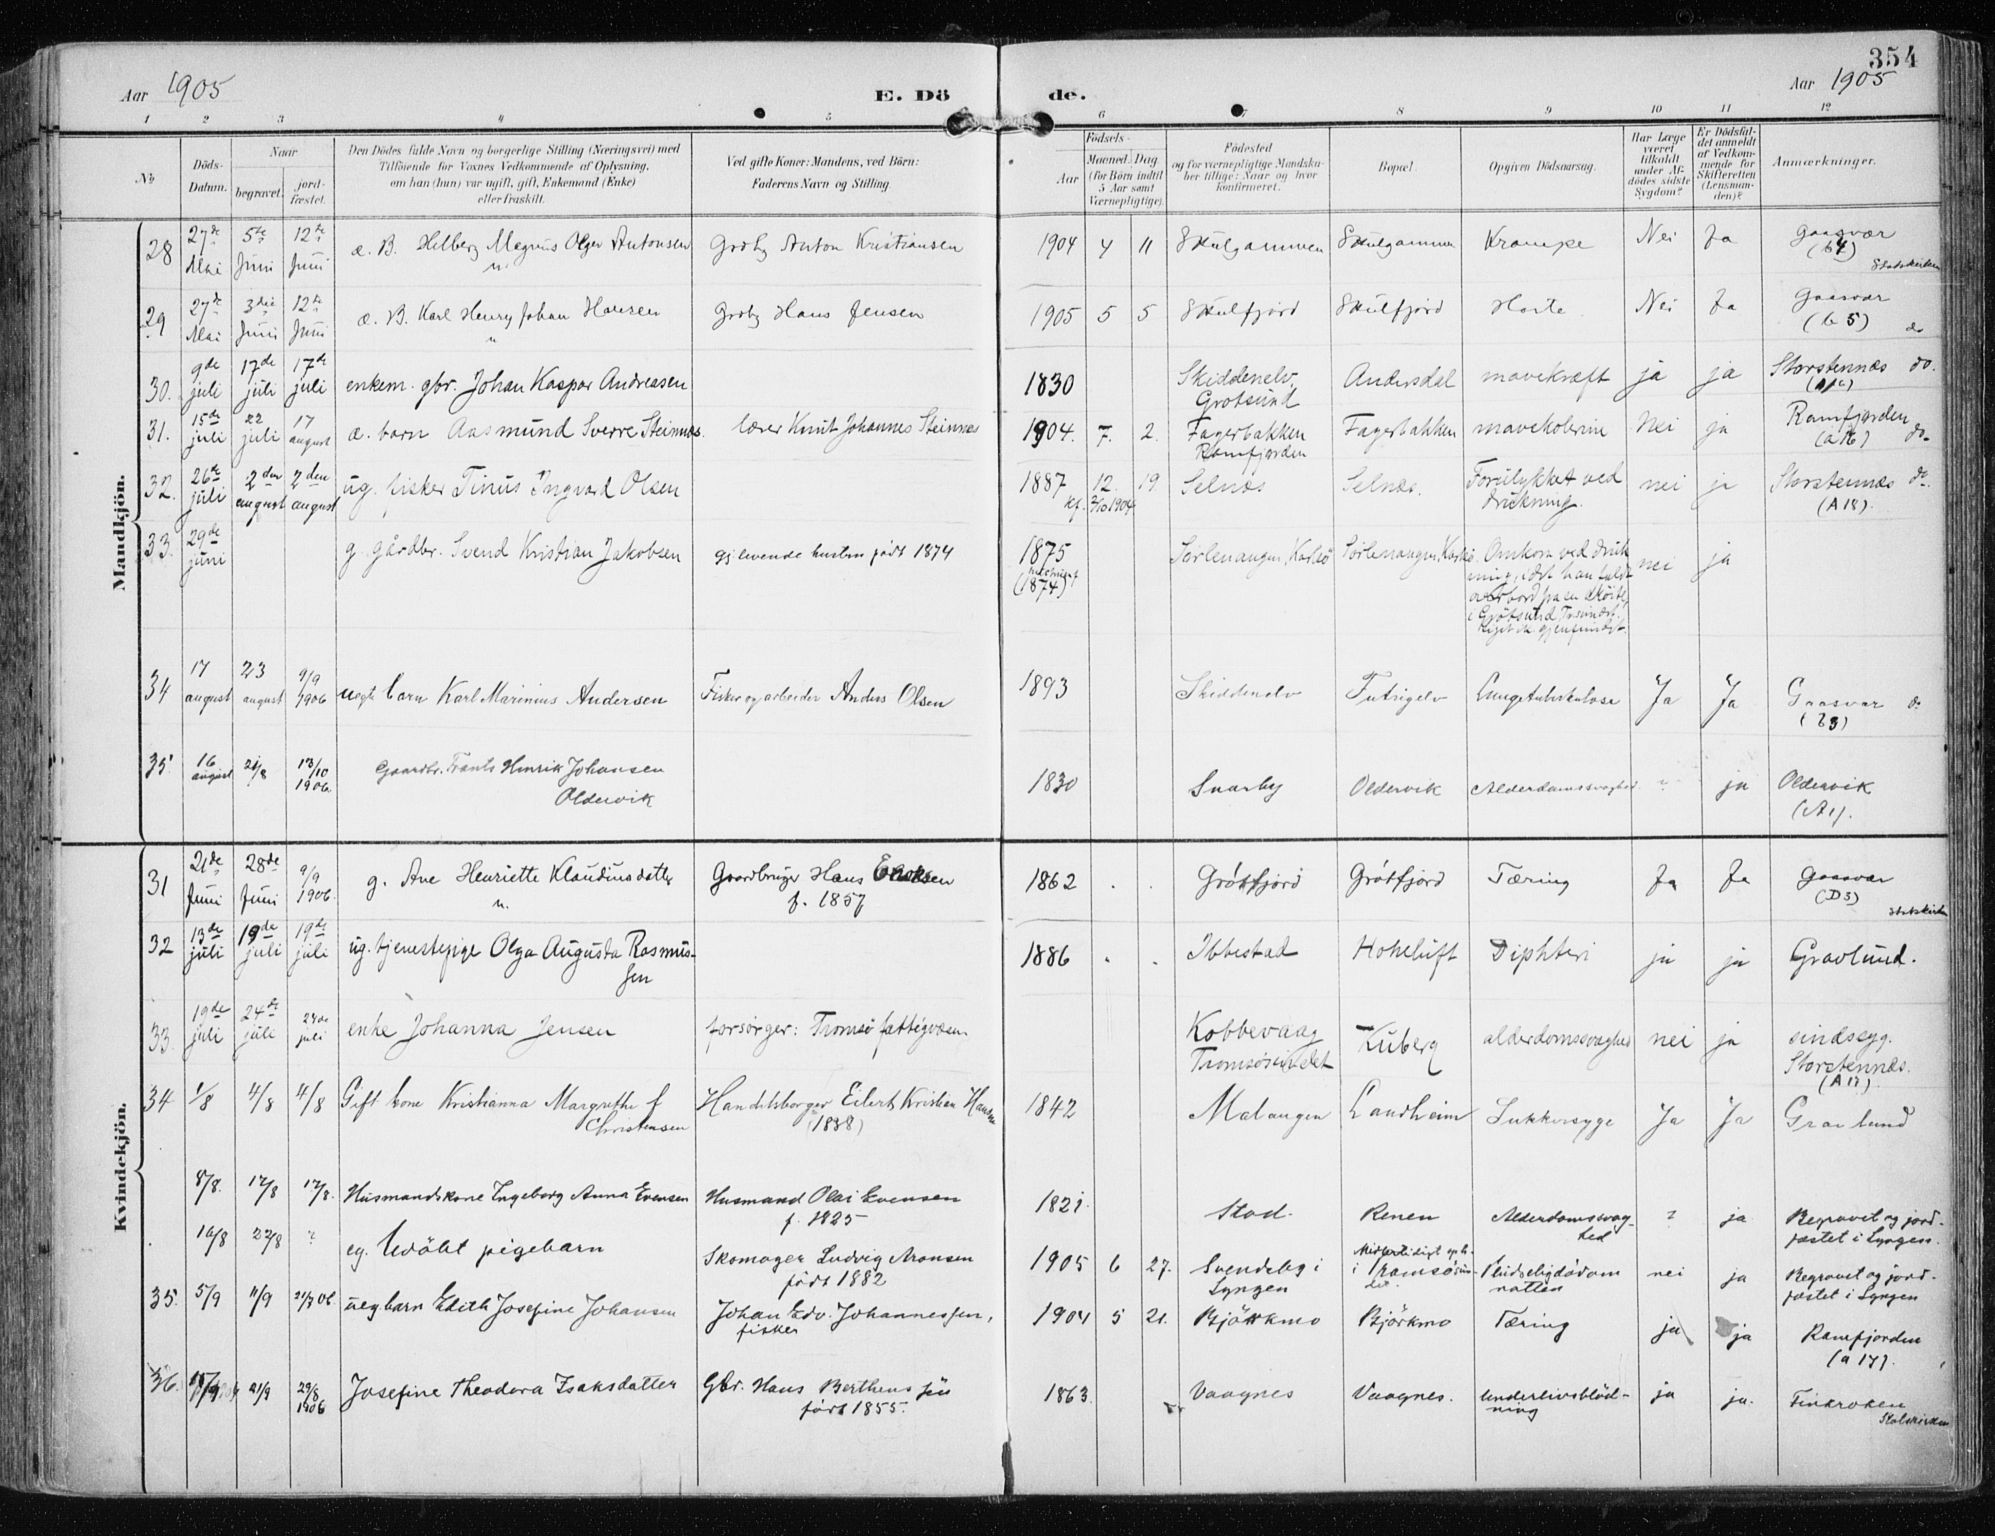 354
Aar 1905
E. Dö
de.
Aar 1905
1 2 3 4 5 6 7 8 9 10 11 12
No
Döds-Datum.
Naar
begravet.
jord-fæstet.
Den Dödes fulde Navn og borgerlige Stilling (Næringsvei) med
Tilföiende for Voxnes Vedkommende af Oplysning,
om han (hun) var ugift, gift, Enkemand (Enke)
eller fraskilt.
Ved gifte Koner: Mandens, ved Börn:
Faderens Navn og Stilling.
Födsels-
Aar
Maaned. Dag.
(for Börn indtil
5 Aar samt
Værnepligtige).
Födested
og for værnepligtige Mandska-
ber tillige: Naar og hvor
konfirmeret.
Bopæl.
Opgiven Dödsaarsag.
Har Læge
været
tilkaldt
under Af-
dödes sidste
Sygdom?
Er Dödsfal-
det anmeldt
af Vedkom-
mende for
Skifteretten
(Lensman-
den)?
Anmærkninger.
Mandkjön.
28 27de Mai 5te Juni 12te Juni æ. B. Hilberg Magnus Olger Antonsen Grdbr Anton Kristiansen 1904 4 11 Skulgammen Skulgammen Krampe Nei Ja Gaasvær
(b4) Statskirken
29 27de Mai 3die Juni 12te Juni æ. B. Karl Henry Johan Hansen Grdbr Hans Jensen 1905 5 5 Skulfjord Skulfjord Hoste Nei Ja Gaasvær
(b5) do
30. 9de juli 17de juli 17de juli enkem. gbr. Johan Kaspar Andreasen 1830 Skiddenelv, Grotsund Andersdal mavekræft ja ja Storstennæs do.
31. 15de juli 22 juli 17 august æ. barn Aasmund Sverre Steinnæs. lærer Knut Johannes Steinnæs 1904. 7. 2. Fagerbakken Ramfjorden Fagerbakken mavekolerine Nei ja Ramfjorden do.
(a16)
32. 26de juli 2den august 2den august ug. fisker Tinus Ingvard Olsen 1887 12. 19. Selnæs Selnæs. Forulykket ved drukning. nei ja Storstennæs do.
kf. 2/10 1904 (A18).
33. 29de juni g. gårdbr. Svend Kristian Jakobsen gjlevende hustru født 1874 1875 (1874) Sörlenangen, Karlsö Sörlenangen, Karlsö Omkom ved druk-
ning, idet han faldt
overbord fra en skøite,
i Grötsund, Tromsøst.
Liget ik. gjenfundet.
nei ja
34 17 august 23 august 9/9 1906 uegte barn Karl Marinius Andersen Fisker og arbeider Anders Olsen 1893 Skiddenelv Futrigelv Lungetuberkulose Ja Ja Gaasvær do
(b3)
35. 16 august 21/8 13/10 1906. Gaardbr. Frants Henrik Johansen
Oldervik
1830 Snarby Oldervik Alderdomssvaghed ? ja Oldervik
(A1).
Kvindekjön.
31 21de Juni 28de Juni 9/9 1906. g. Ane Henriette Klaudiusdatter Gaardbruger Hans Enoksen
f. 1857
1862 . . Grötfjord Grötfjord Tæring Ja Ja Gaasvær
(D3) Statskirken
32 13de juli 19de juli 19de juli ug. tjenestepige Olga Augusta Rasmus-
sen
1886 . . Ibbestad Hokeluft Diphteri ja ja Gravlund.
33. 19de juli 24de juli 24de juli enke Johanna Jensen forsørger: Tromsö fattigvæsen. Kobbevaag
Tromsøsundet
Kuberg alderdomssvaghed nei ja sindssyg.
Storstennæs.
(A17).
34 1/8 4/8 4/8 Gift kone Kristianna Margrethe f
Christensen
Handelsborger Eilert Kristian Hansen
(1838)
1842 Malangen Landheim Sukkersyge Ja Ja Gravlund
8/8. 17/8 17/8. Husmandskone Ingeborg Anna Evensen Husmand Olai Evensen
f. 1825
1821. Stod. Renen Alderdomssvag-
hed
? ja Begravet og jord-
fæstet i Lyngen.
16/8 22/8 ? eg. Udöbt pigebarn Skomager Ludvig Aronsen
født 1882
1905 6 27. Svendsby i
Lyngen
Midlertidigt oph.
i Tromsøsun-
det
Pludseligdödom
natten
nei ja Begravet og jord-
fæstet i Lyngen
35. 5/9 11/9 21/7 06. uegbarn Edith Josefine Johansen Johan Edv. Johannessen,
fisker
1904 5 21. Björkmo Björkmo Tæring ja ja Ramfjorden
(a 17).
36. 21/9 29/8 1906 Josefine Theodora Isaksdatter Gbr. Hans Berthenssen
født 1855.
1863. Vaagnes Vaagnes. Underlivsblöd-
ning
ja ja. Finkroken
Statskirken